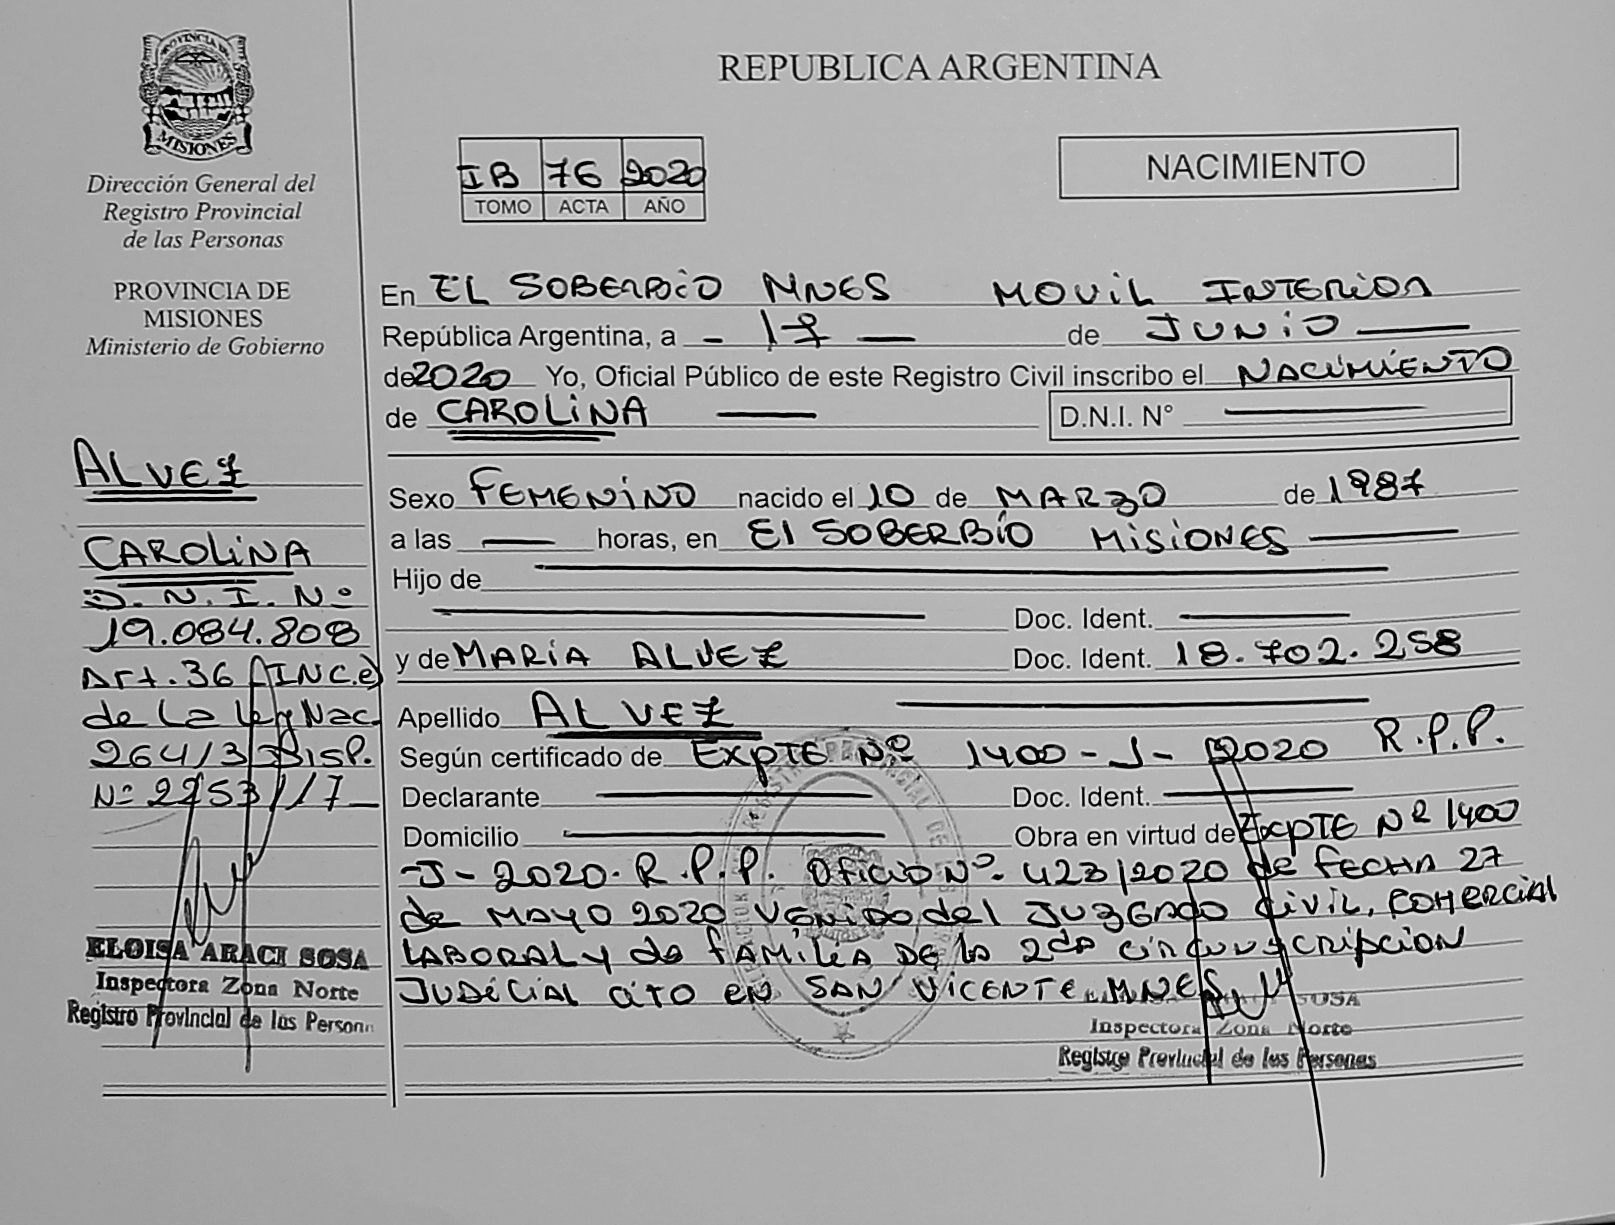 PROVINCIA DE
MISIONES
Dirección General del
Registro Provincial
de las Personas
PROVINCIA DE
MISIONES
Ministerio de Gobierno
ALVEZ
CAROLINA
D.N.I. Nº
19.084.808
Art. 36 (INC.e)
de La Ley Nac.
26413 DISP.
Nº 2253/17
ELOISA ARACI SOSA
Inspectora Zona Norte
Registro Provincial de las Person
REPUBLICA ARGENTINA
IB 76 2020
TOMO ACTA AÑO
NACIMIENTO
En EL SOBERBIO MNES MOVIL INTERIOR
República Argentina, a - 17 — de JUNIO —
de 2020 Yo, Oficial Público de este Registro Civil inscribo el NACIMIENTO
de CAROLINA — D.N.I. N° —
Sexo FEMENINO nacido el 10 de MARZO de 1987
a las — horas, en El SOBERBIO MISIONES —
Hijo de —
— Doc. Ident. —
y de MARIA ALVEZ Doc. Ident. 18.702.258
Apellido ALVEZ —
Según certificado de EXPTE Nº 1400-J-2020 R.P.P.
Declarante — Doc. Ident. —
Domicilio — Obra en virtud de EXPTE Nº 1400
-J-2020. R.P.P. OFICIO Nº 423/2020 de FECHA 27
de MAYO 2020 VENIDO del JUZGADO CIVIL, COMERCIAL
LABORAL y de FAMILIA DE la 2da CIRCUNSCRIPCION
JUDICIAL CITO EN SAN VICENTE MNES
SOSA
Inspectora Zona Norte
Registro Provincial de las Personas